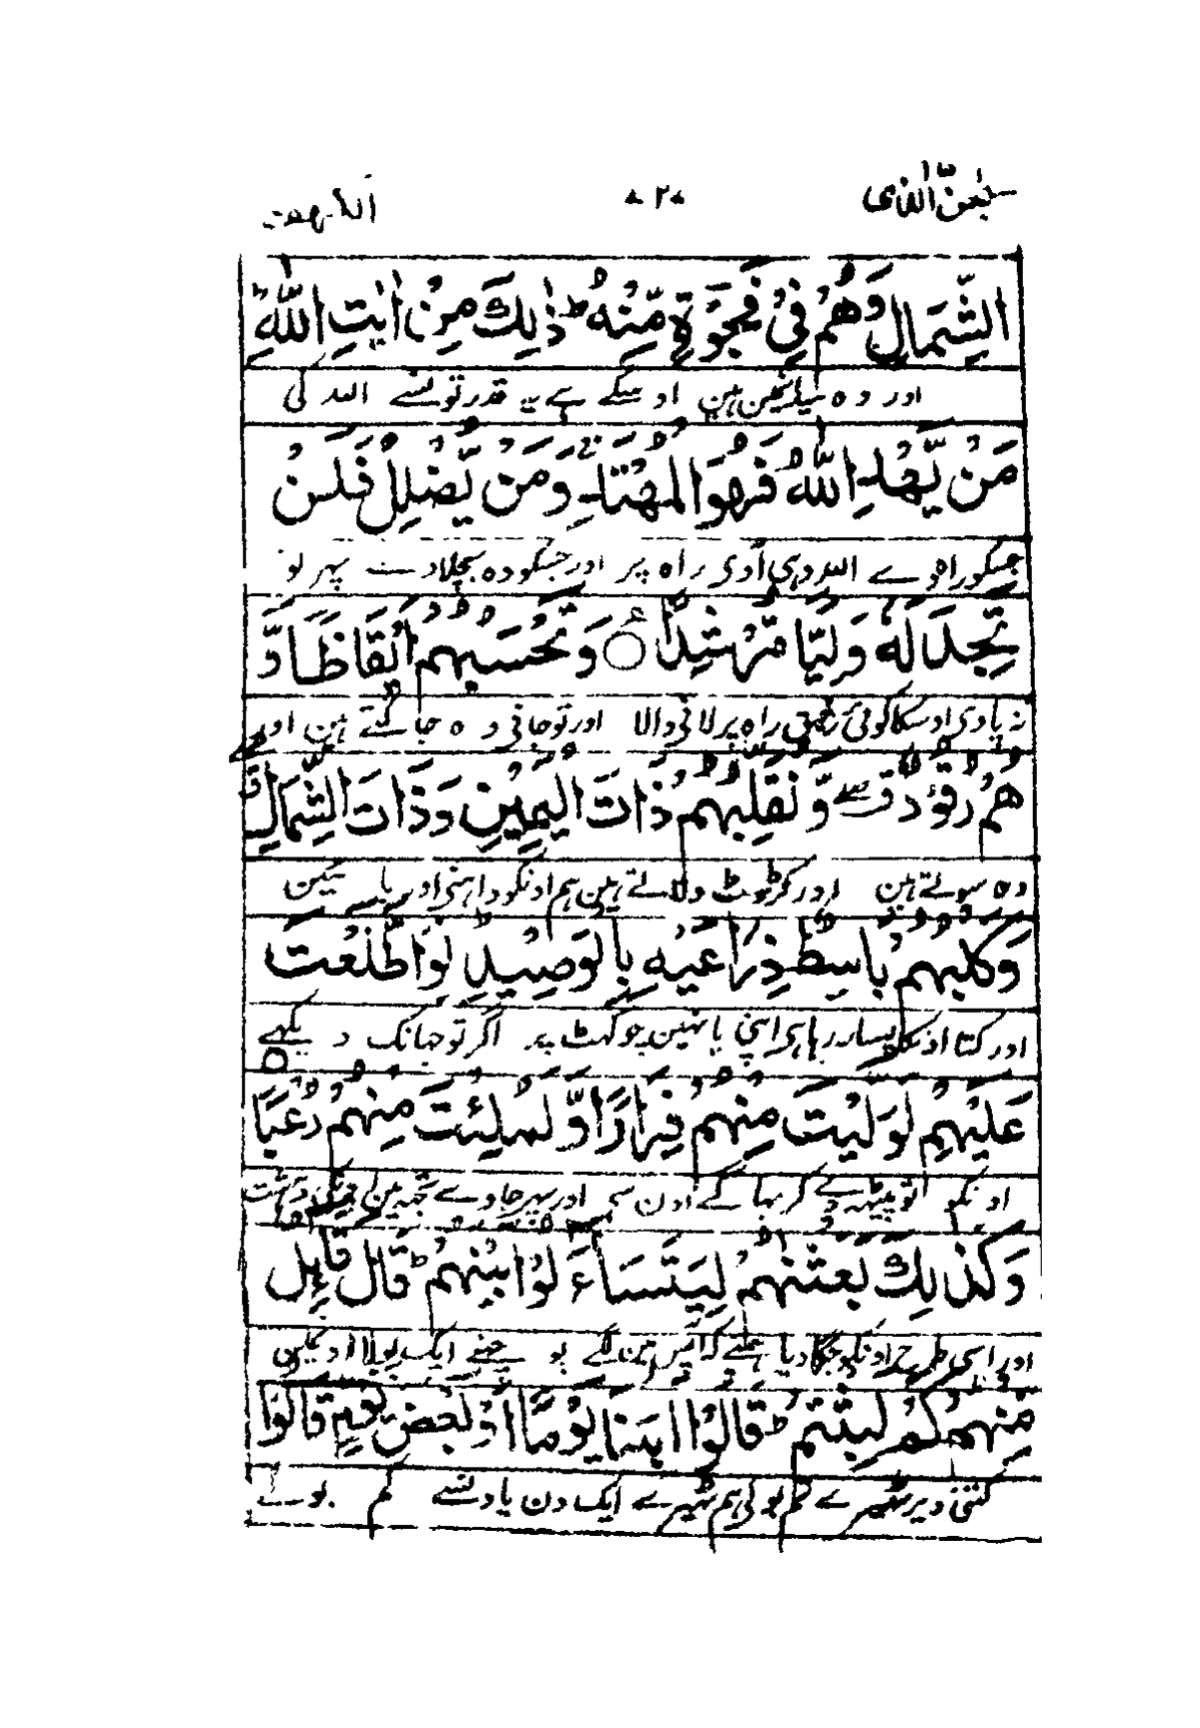 سبحٰن الّذی ۲۰۸ الکهف
الشِّمَالِ وَهُمْ فِیْ فَجْوَةٍ مِّنْهُ ؕ ذٰلِكَ مِنْ اٰیٰتِ اللّٰهِ ؕ
اور وہ میدانمین ہین اوسکے ہے یہ قدرتونسے اللہ کی
مَنْ یَّهْدِ اللّٰهُ فَهُوَ الْمُهْتَدِ ۚ وَمَنْ یُّضْلِلْ فَلَنْ
جسکو راہ دے اللہ وہی آوی راہ پر اور جسکو وہ بچلادے پہر تو
تَجِدَ لَهٗ وَلِیًّا مُّرْشِدًا ۝ ع وَتَحْسَبُهُمْ اَیْقَاظًا وَّ
نہ پاوی اوسکا کوئی رفیق راہ پر لانی والا اور تو جانی وہ جاگتے ہین اور
هُمْ رُقُوْدٌ ۖق وَّنُقَلِّبُهُمْ ذَاتَ الْیَمِیْنِ وَذَاتَ الشِّمَالِ ۖق
وہ سوتے ہین اور کروٹ دلاتے ہین ہم اونکو داہنی اور بائین
وَكَلْبُهُمْ بَاسِطٌ ذِرَاعَیْهِ بِالْوَصِیْدِ ؕ لَوِ اطَّلَعْتَ
اور کتا اونکا پسار رہا ہی اپنی بانہین چوکہٹ پر اگر تو جہانک دیکہے
عَلَیْهِمْ لَوَلَّیْتَ مِنْهُمْ فِرَارًا وَّلَمُلِئْتَ مِنْهُمْ رُعْبًا ۝
اونکو تو پیٹہہ دے کر بہاگے اون سی اور بہر جاوے تجہہ مین اونکی دہشت
وَكَذٰلِكَ بَعَثْنٰهُمْ لِیَتَسَآءَلُوْا بَیْنَهُمْ ؕ قَالَ قَآىِٕلٌ
اور اسی طرح اونکو جگا دیا ہمنے کہ آپس مین لگے پوچھنے ایک بولا اونمین
مِّنْهُمْ كَمْ لَبِثْتُمْ ؕ قَالُوْا لَبِثْنَا یَوْمًا اَوْ بَعْضَ یَوْمٍ ؕ قَالُوْا
کتنی دیر ٹہیرے تم بولی ہم ٹہیرے ایک دن یا دنسے کم بولے